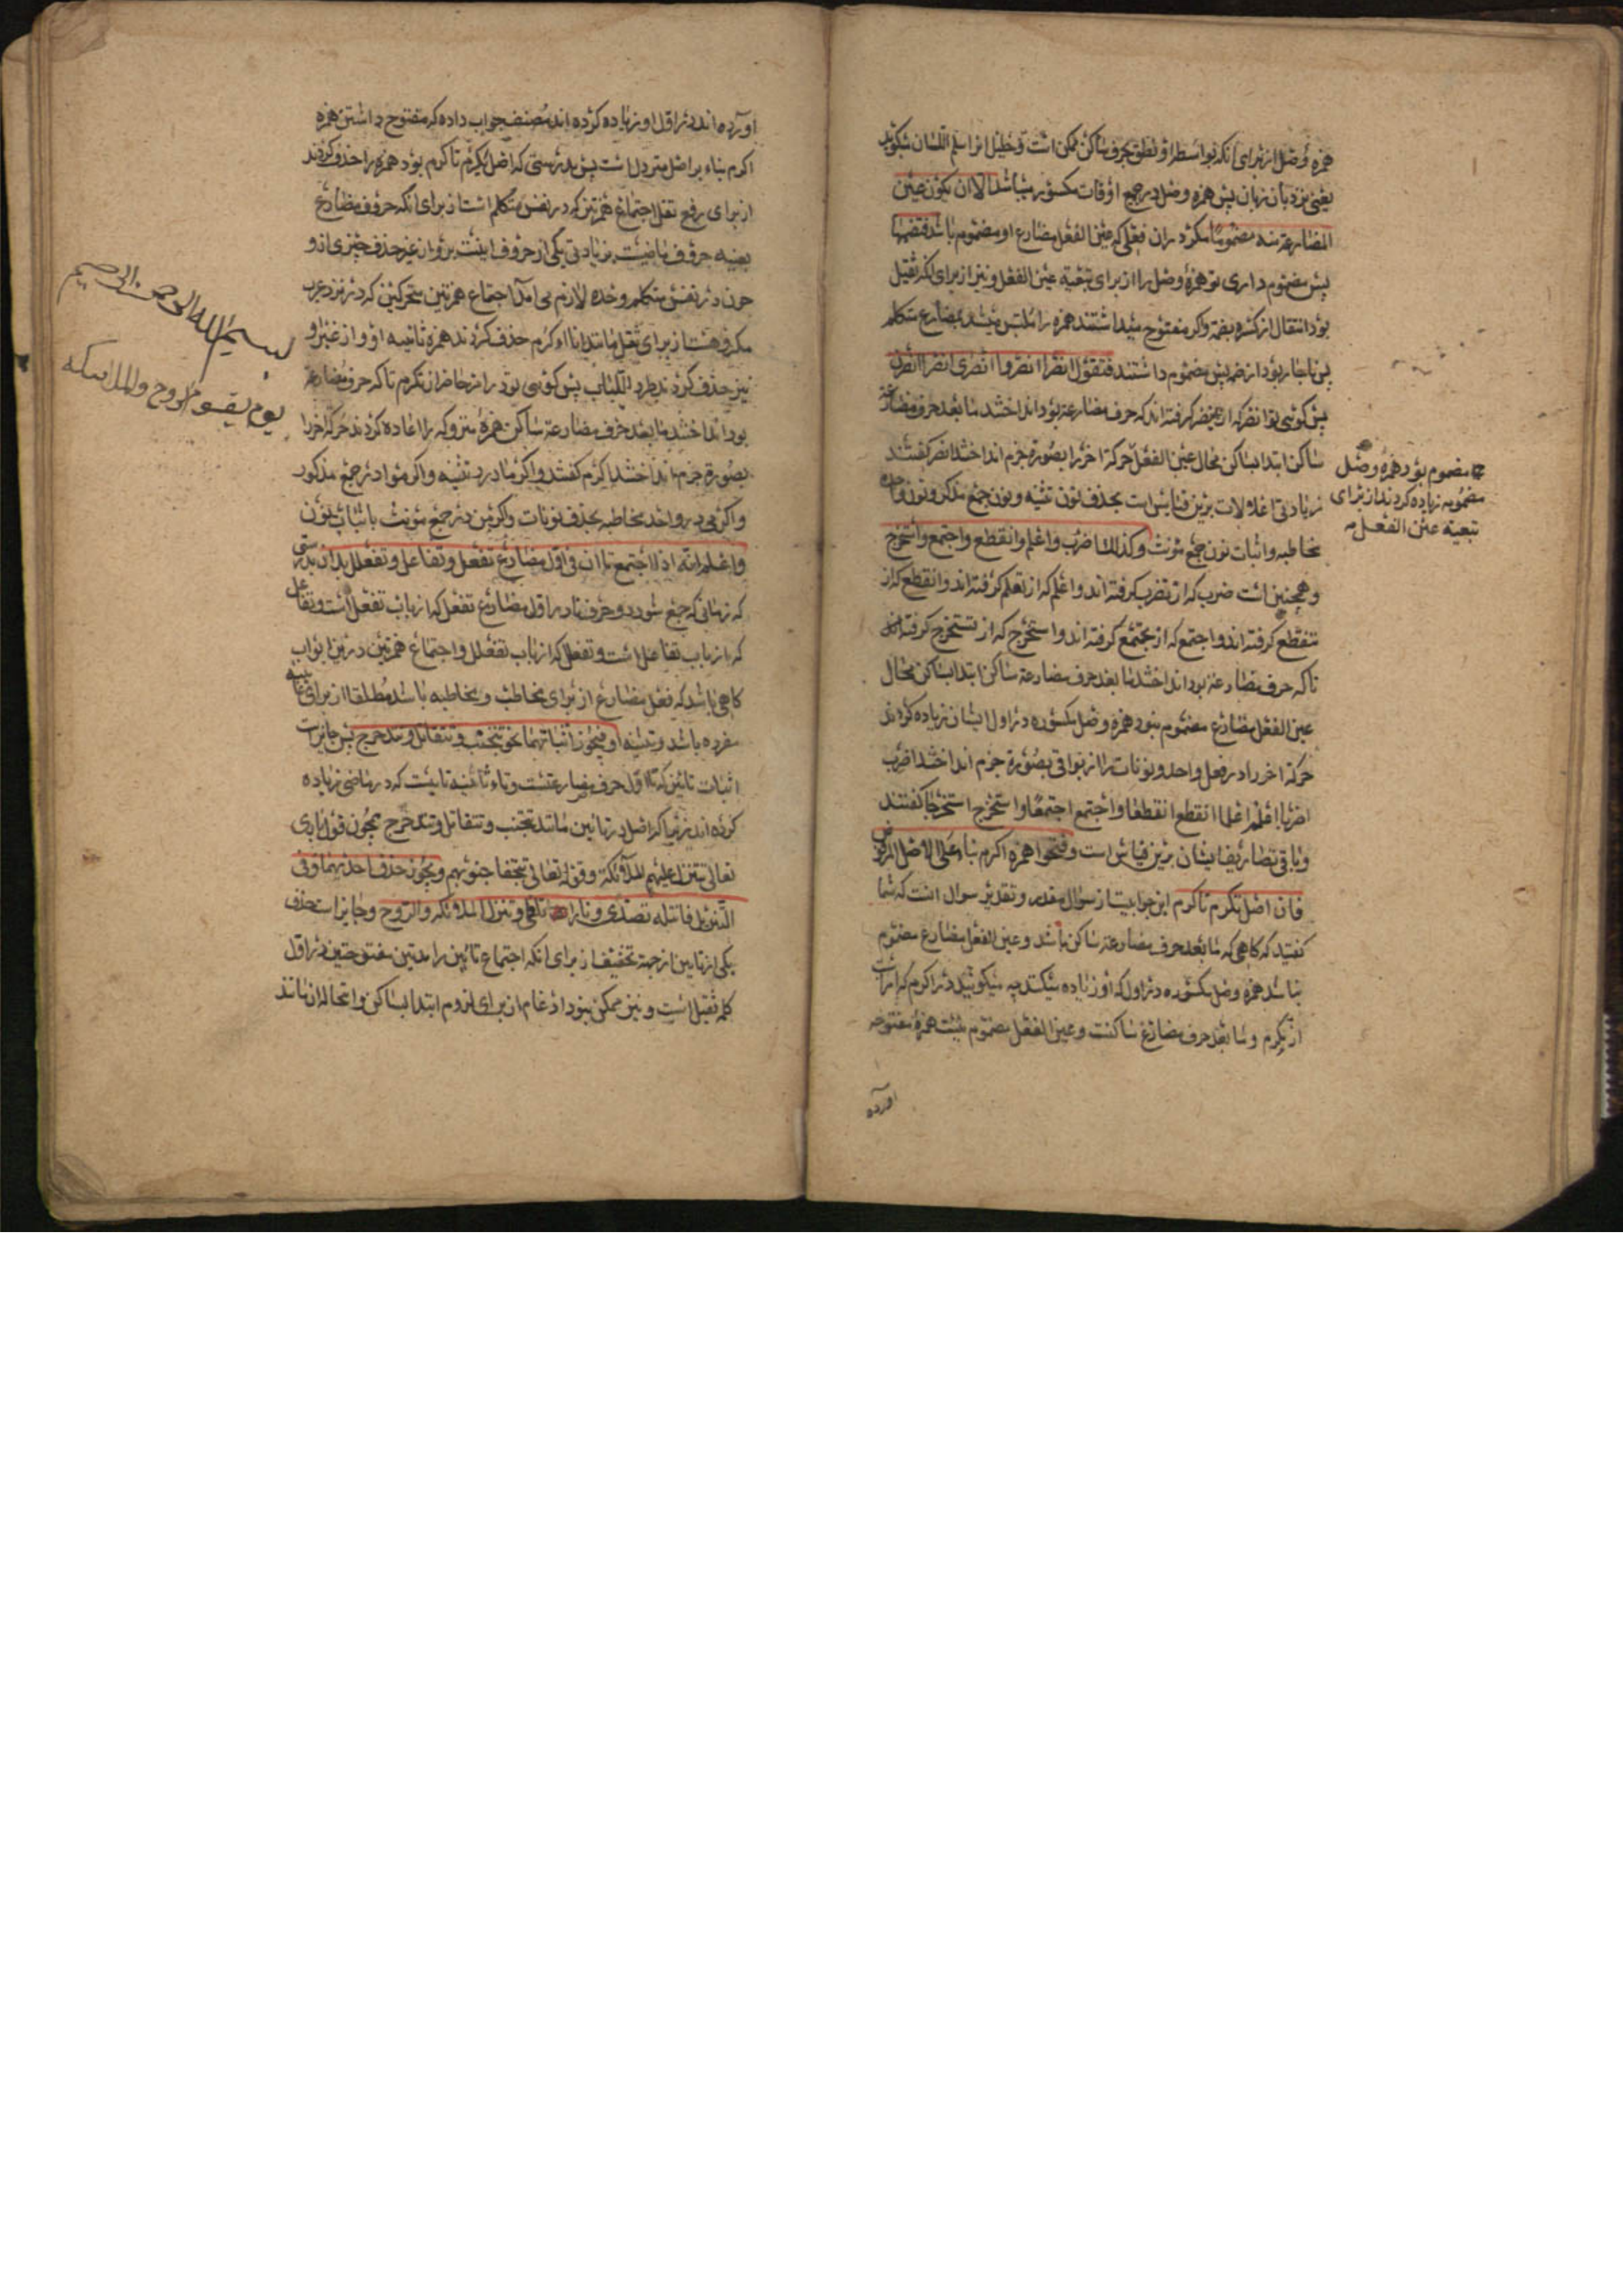 همزه وصل از برای انکه بواسطه او نطق بحرف ساکن ممکن است و خلیل انرا سلم اللسان میکوید
یعنی نردبان زبان پس همزه وصل در جمیع اوقات مکسور میباشد الا ان یکون عین
المضارعة منه مضموما مکر در ان فعلی که عین الفعل مضارع او مضموم باشد فتضمها
پس مضموم داری تو همزهٔ وصل را از برای تبعیة عین الفعل و نیز از برای انکه ثقیل
بود انتقال از کسره بضمه و اکر مفتوح میداشتند همزه را ملتبس میشد بمضارع متکلم
پس ناچار بود از ضم پس مضموم داشتند فتقول انصر انصرا انصروا انصری انصرا انصرن
پس کوئی تو انصر که از تنصر کرفته اند که حرف مضارعة بود انداختند ما بعد حرف مضارعة
ساکن ابتدا بساکن محال عین الفعل حرکة اخر را بصورة جزم انداختند انصر کفتند
زیادتی اعلالات برین قیاس است بحذف نون تثنیه و نون جمع مذکر و نون واحده
مخاطبه و اثبات نون جمع مونث و کذلک اضرب و اعلم و انقطع و اجتمع و استخرج
و همچنین است ضرب که از تضرب کرفته اند و اعلم که از تعلم کرفته اند و انقطع که از
تنقطع کرفته اند و اجتمع که از تجتمع کرفته اند و استخرج که از تستخرج کرفته اند
تا که حرف مضارعة بود انداختند ما بعد حرف مضارعة ساکن ابتدا بساکن محال
عین الفعل مضارع مضموم نبود همزه وصل مکسوره در اول ایشان زیاده کردند
حرکة اخر را در فعل واحد و نونات را از بواقی بصورة جزم انداختند اضرب
اضربا اعلم اعلما انقطع انقطعا و اجتمع اجتمعا و استخرج استخرجا کفتند
و باقی تصاریف ایشان برین قیاس است و فتحوا همزه اکرم بناء علی الاصل المرفوض
فان اصل تکرم تاکرم این جوابیست از سوال مقدر و تقدیر سوال انست که شما
کفتید که کاهی که ما بعد حرف مضارعة ساکن باشد و عین الفعل مضارع مضموم
نباشد همزه وصل مکسوره در اول که او زیاده میکنند چه میکوئید در اکرم که امر است
از تکرم و ما بعد حرف مضارع ساکنست و عین الفعل مضموم نیست همزهٔ مفتوحه
اورده
مضموم بود همزه وصل
مضمومه زیاده کردند از برای
تبعیة عین الفعل
اورده اند در اول او زیاده کرده اند مصنف جواب داده که مفتوح داشتن همزه
اکرم بناء بر اصل متروک است پس بدرستی که اصل تکرم تاکرم بود همزه را حذف کردند
از برای رفع ثقل اجتماع همزتین که در نفس متکلم است از برای انکه حروف مضارع
بعینه حروف ماضیست بزیادتی یکی از حروف اتین برو ان غیر حذف چیزی ازو
چون در نفس متکلم وحده لازم می امد اجتماع همزتین متحرکتین که در نزد عرب
مکروهست از برای ثقل مانند ااکرم حذف کردند همزه ثانیه او و از غیر او
نیز حذف کردند طردا للباب پس کوئی تو در امر حاضر از تکرم تا که حرف مضارعة
بود انداختند ما بعد حرف مضارعة ساکن همزهٔ متروکه را اعاده کردند حرکة اخر را
بصورة جزم انداختند اکرم کفتند و اکرما در تثنیه و اکرموا در جمع مذکور
و اکرمی در واحد مخاطبه بحذف نونات و اکرمن در جمع مونث باثبات نون
و اعلم انه اذا اجتمع تاان فی اول مضارع تفعل و تفاعل و تفعلل بدان بدرستی
که زمانی که جمع شود دو حرف تا در اول مضارع تفعل که از باب تفعل است و تفاعل
که از باب تفاعل است و تفعلل که از باب تفعلل و اجتماع همزتین درین ابواب
کاهی باشد که فعل مضارع از برای مخاطب و مخاطبه باشد مطلقا از برای غائبه
مفرده باشد و تثنیه او فیجوز اثباتهما نحو تتجنب و تتقاتل و تتدحرج پس جایز است
اثبات تائین که تاء اول حرف مضارعتست و تاء ثانیه تائیست که در ماضی زیاده
کرده اند زیرا که اصل در تائین مانند تتجنب و تتقاتل و تتدحرج همچون قول باری
تعالی تتنزل علیهم الملائکة و قوله تعالی تتجافا جنوبهم و یجوز حذف احدیهما و فی
التنزیل فانت له تصدی و نارا تلظی و تنزل الملائکة والروح و جایز است حذف
یکی از تایین از جهة تخفیف از برای انکه اجتماع تائین زایدتین مفتوحتین در اول
کلمه ثقیل است و نیز ممکن نبود ادغام از برای لزوم ابتدا بساکن و استحاله ان مانند
بسم الله الرحمن الرحیم
یوم یقوم الروح والملائکه